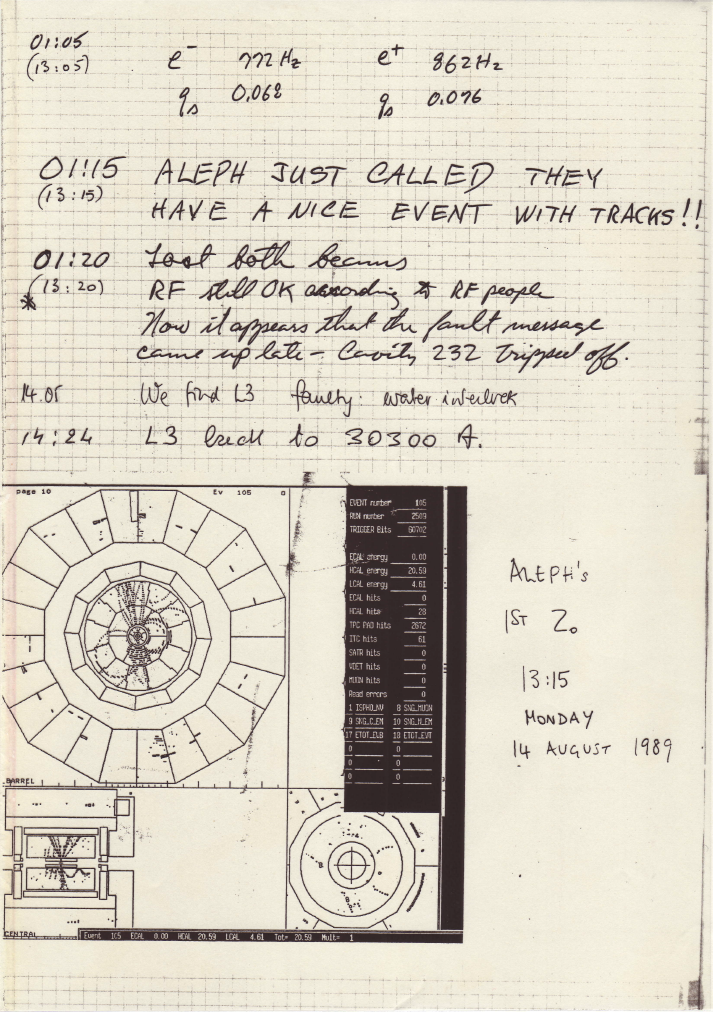 01:05
(13:05)
e⁻ 777 Hz e⁺ 862 Hz
qs 0,068 qs 0.076
01:15 ALEPH JUST CALLED THEY
(13:15)
HAVE A NICE EVENT WITH TRACKS!!
01:20 Lost both beams
(13:20) RF still OK according to RF people
* Now it appears that the fault message
came up late – Cavity 232 tripped off.
14.05 We find L3 faulty: water interlock
14:24 L3 back to 30300 A.
page 10 Ev 105 0
EVENT number 105
RUN number 2509
TRIGGER Bits
ECAL energy 0.00
HCAL energy 20.59
LCAL energy 4.61
ECAL hits 0
HCAL hits 28
TPC PAD hits 2672
ITC hits 61
SATR hits 0
VDET hits 0
MUON hits 0
Read errors 0
1 8 SNG_MUON
9 SNG_C_EM 10 SNG_N_EM
17 ETOT_EWB 18 ETOT_EWT
0 0
0 0
0 0
BARREL
CENTRAL
Event 105 ECAL 0.00 HCAL 20.59 LCAL 4.61 Tot= 20.59 Mult= 1
ALEPH's
1ST Z₀
13:15
MONDAY
14 AUGUST 1989